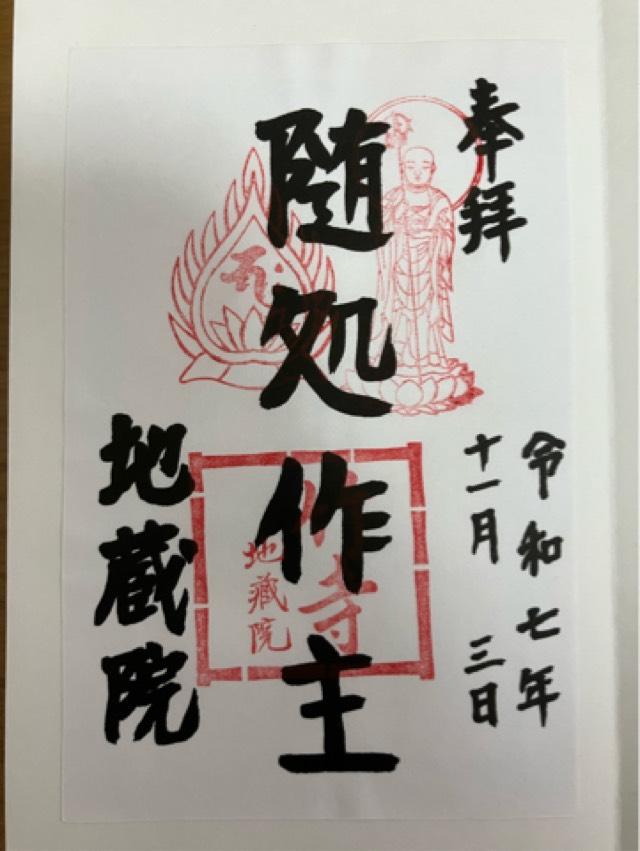 奉拝
令和七年
十一月 三日
随処作主
竹寺
地蔵院
地蔵院